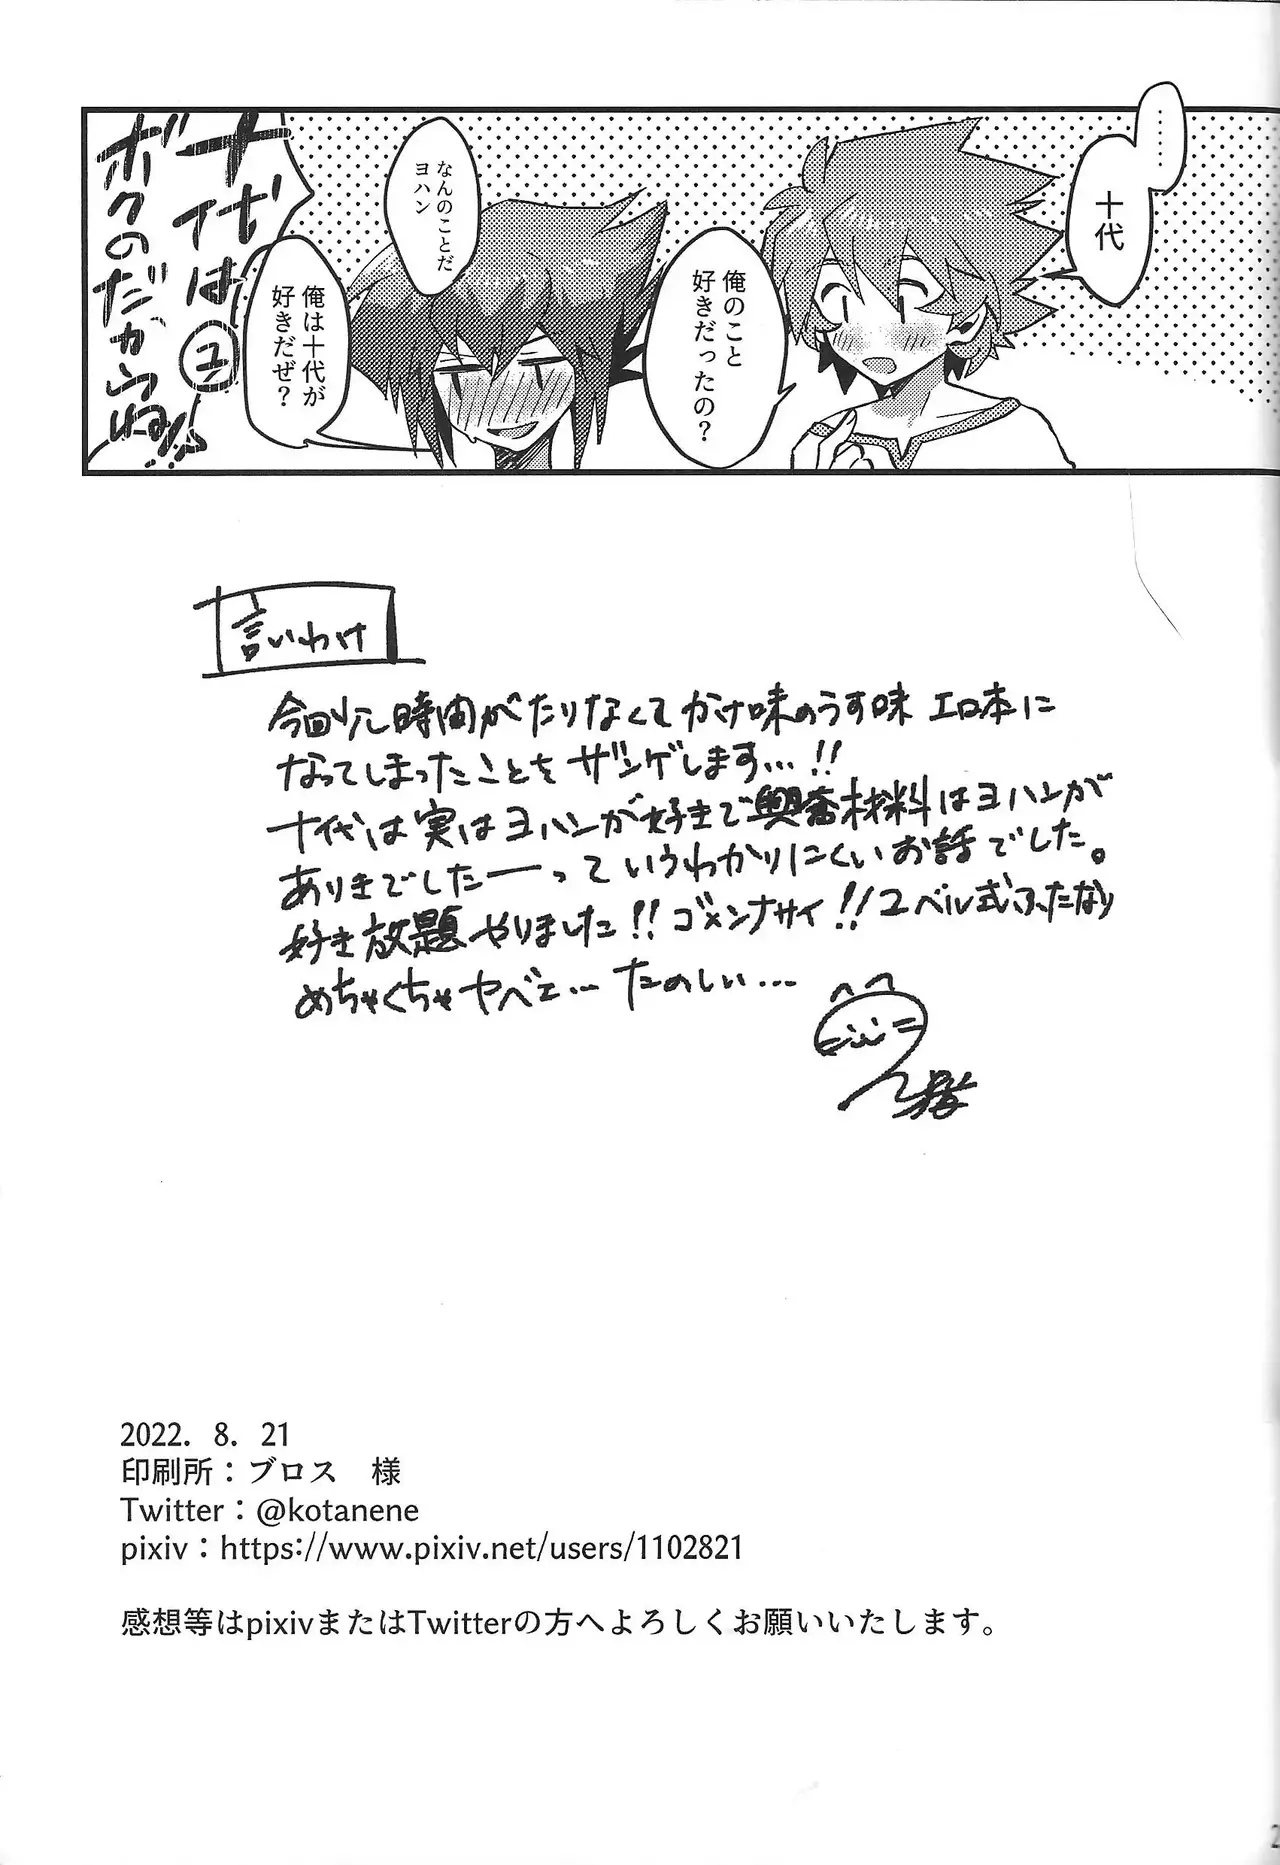 ……
十代
俺のこと
好きだったの？
なんのことだ
ヨハン
俺は十代が
好きだぜ？
十代は
ボクのだからね!!
ユ
言いわけ
今回少し時間がたりなくてかけ味のうす味 エロ本に
なってしまったことをザンゲします…!!
十代は実はヨハンが好きで興奮材料はヨハンが
ありきでしたーっていうわかりにくいお話でした。
好き放題やりました!!ゴメンナサイ!!ユベル式ふたなり
めちゃくちゃヤベェ… たのしい…
2022. 8. 21
印刷所：ブロス 様
Twitter：@kotanene
pixiv：https://www.pixiv.net/users/1102821
感想等はpixivまたはTwitterの方へよろしくお願いいたします。
2